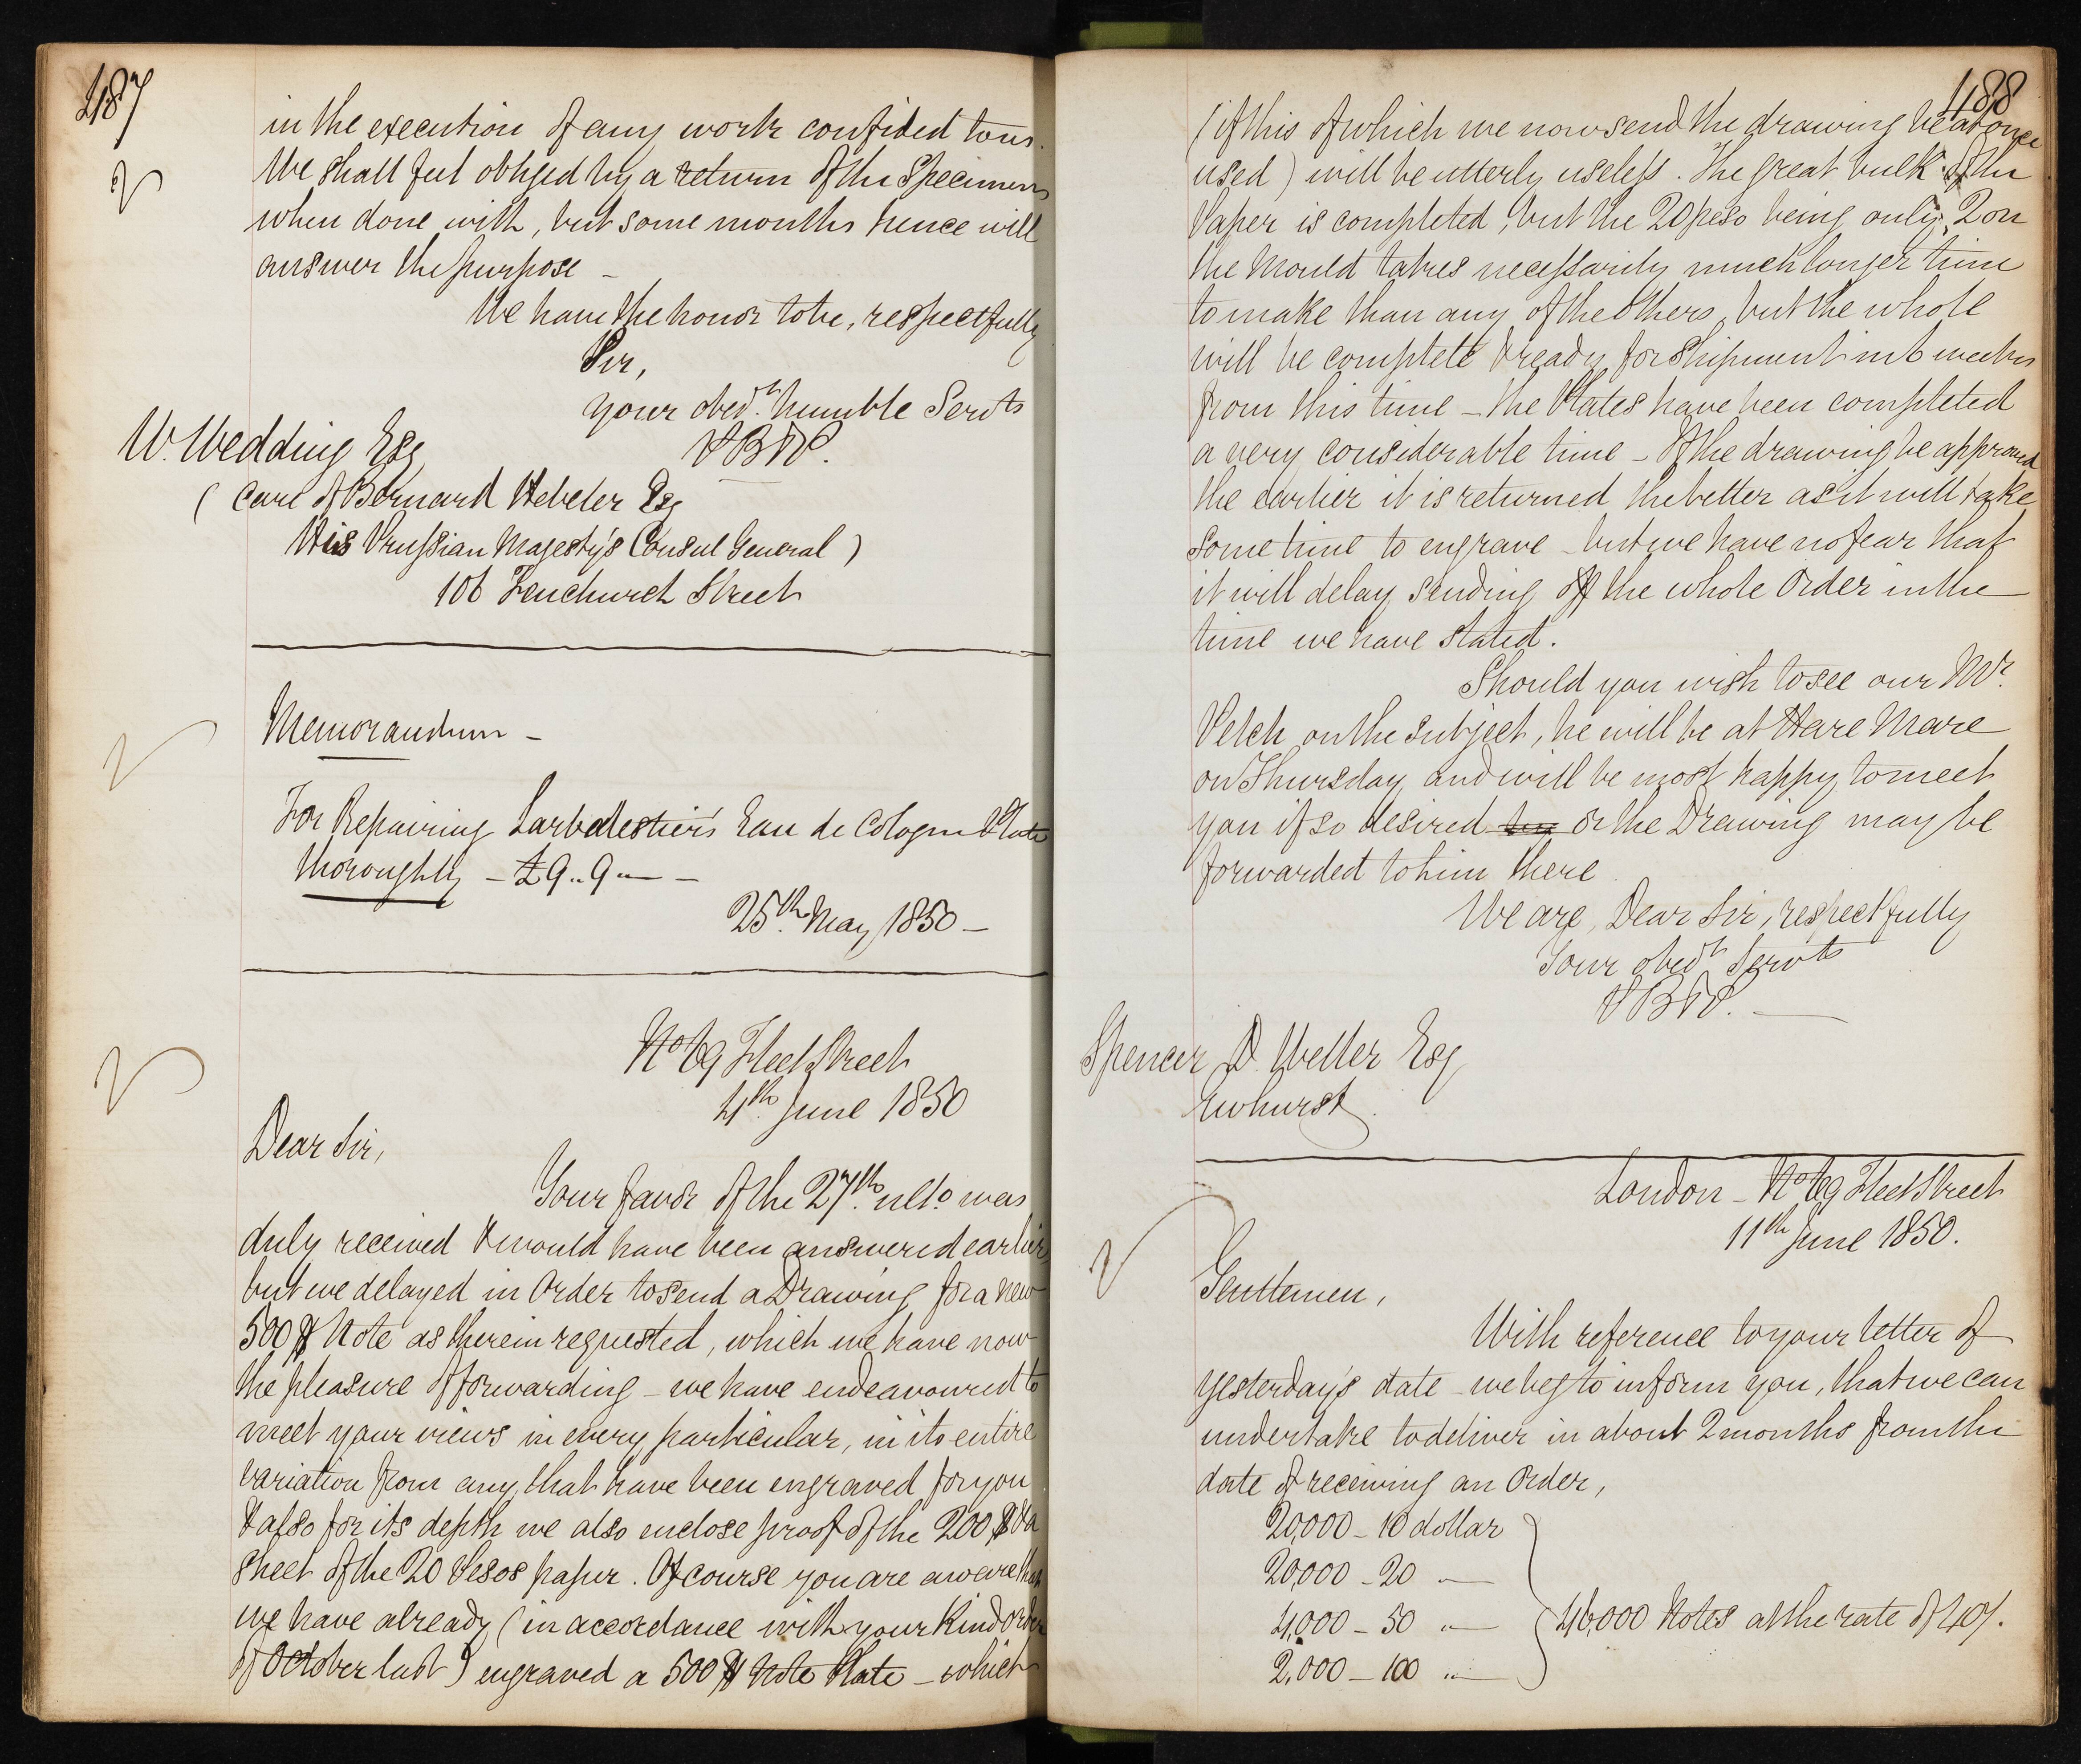 487
in the execution of any work confided to us.
We shall feel obliged by a return of the Specimens
when done with, but some months hence will
answer the purpose –
We have the honor to be, respectfully
Sir,
your obedt. humble Servts
PB&P.
W. Wedding Esq
( care of Bernard Hebeler Esq
His Prussian Majesty's Consul General )
106 Fenchurch Street
Memorandum –
For Repairing Larbalestier's Eau de Cologne Plate
thoroughly – £9..9..– –
25th. May 1850 –
No 69 Fleet Street
4th. June 1850
Dear Sir,
Your favor of the 27th. ulto. was
duly received & would have been answered earlier,
but we delayed in order to send a Drawing for a new
500 $ Note as therein requested, which we have now
the pleasure of forwarding – we have endeavoured to
meet your views in every particular, in its entire
variation from any that have been engraved for you
& also for its depth we also enclose proof of the 200 $ & a
Sheet of the 20 Pesos paper. Of course you are aware that
we have already (in accordance with your kind order
of October last) engraved a 500 $ Note Plate – which
488
(if this of which we now send the drawing be at once
used) will be utterly useless. The great bulk of the
Paper is completed, but the 20 peso being only 2 on
the Mould takes necessarily much longer time
to make than any of the others, but the whole
will be complete & ready for Shipment in 6 weeks
from this time – The Plates have been completed
a very considerable time – If the drawing be approved
the earlier it is returned the better as it will take
some time to engrave – but we have no fear that
it will delay sending off the whole Order in the
time we have stated.
Should you wish to see our Mr.
Petch on the subject, he will be at Hare Mare
on Thursday and will be most happy to meet
you if so desired or the Drawing may be
forwarded to him there
We are, Dear Sir, respectfully
Your obedt Servts
PB&P. –
Spencer P. Weller Esq
Ewhurst.
London – No 69 Fleet Street
11th June 1850.
Gentlemen,
With reference to your letter of
yesterday's date – we beg to inform you, that we can
undertake to deliver in about 2 months from the
date of receiving an Order,
20,000 – 10 dollar
20,000 – 20 "–
4,000 – 50 "– 46,000 Notes at the rate of 40/.
2,000 – 100 "–